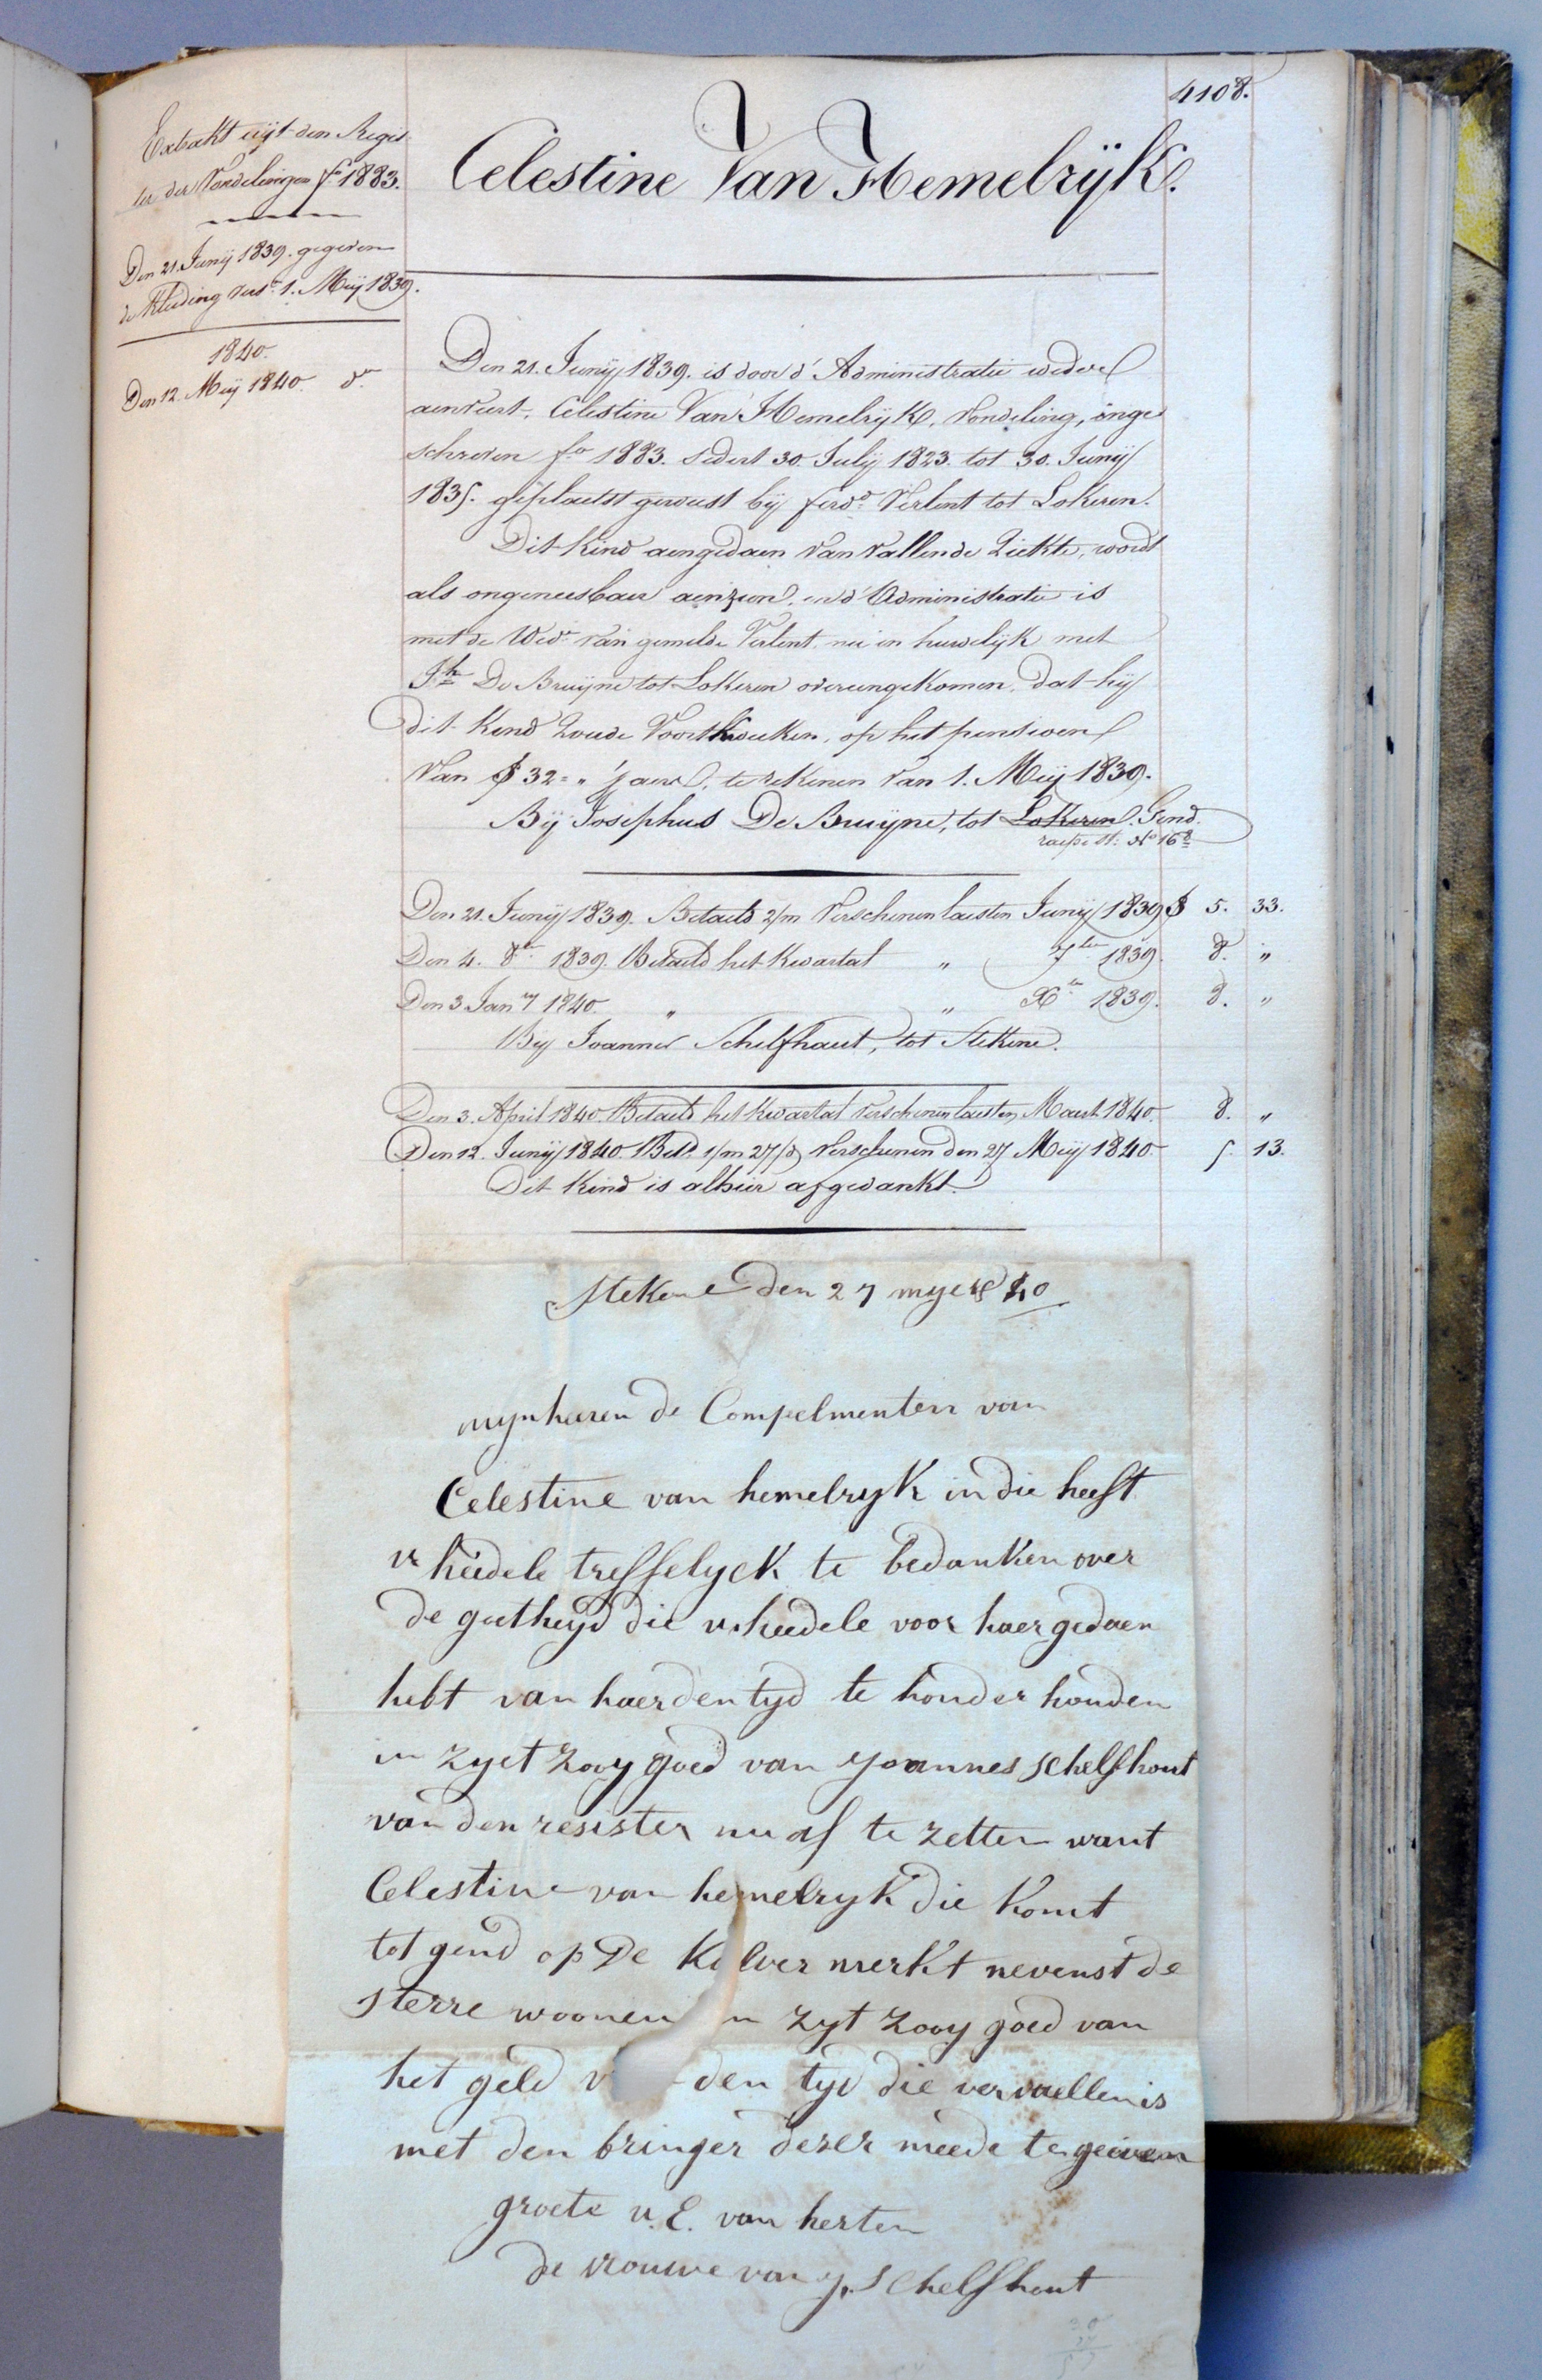 4108.
Celestine Van Hemelrÿk.
Extrakt uÿt den Regis-
ter der Vondelingen fº 1883.
Den 21. Junÿ 1839. gegeven
de kleding vers.ⁿ 1. Meÿ 1839.
1840.
Den 12. Meÿ 1840. dº
Den 21. Junÿ 1839. is door d' Administratie weder
aenveert, Celestine Van Hemelrÿk, Vondeling, inge
schreven fº 1883. sedert 30. Julÿ 1823. tot 30. Junÿ
1835. geplaetst geweest bÿ ferdº Verlent tot Lokeren.
Dit Kind aengedaen van vallende Ziekte, wordt
als ongeneesbaer aenzien, en d'Administratie is
met de Wedᵉ van gemelde Verlent, nu in huwelÿk met
Jʰ De Bruÿne tot Lokeren overeengekomen, dat hÿ
dit Kend zoude Voortkweeken, op het pensioen
Van $ 32 = " 'jaers, te rekenen van 1. Meÿ 1839.
Bÿ Josephus De Bruÿne, tot Lokeren. Gend.
raepe st: Nº 168
Den 21. Junÿ 1839. Betaeld 2/m Verschenen laesten Junÿ 1839 $ 5. 33.
Den 4. 8ᵉʳ 1839. Betaeld het kwartal " 7ᵇᵉʳ 1839. 8. "
Den 3 Janʳʸ 1840. " " Xᵇᵉʳ 1839. 8. "
Bÿ Joannes Schelfhaut, tot Stekene.
Den 3. April 1840. Betaeld het kwartal verschenen laesten Maert 1840. 8. "
Den 12. Junÿ 1840. Betᵈ 1/m 27/d Verschenen den 27 Meÿ 1840. 5. 13.
Dit Kind is alhier afgedankt.
Stekene den 27 myeie 40
mynheeren de Compelmenten van
Celestine van hemelryk in die heeft
u heedele treffelyck te bedanken over
de goetheyd die u heedele voor haer gedaen
hebt van haer den tyd te honder houden
en zyet zooy goed van yoannes schelfhout
van den resister nu af te zetten want
Celestine van hemelryk die komt
tot gend op de Kalver merkt nevenst de
sterre woonen en zyt zooy goed van
het geld v den tyd die vervaellen is
met den bringer deser meede te geeven
groete u. E. van herten
de vrouwe van j. schelfhout